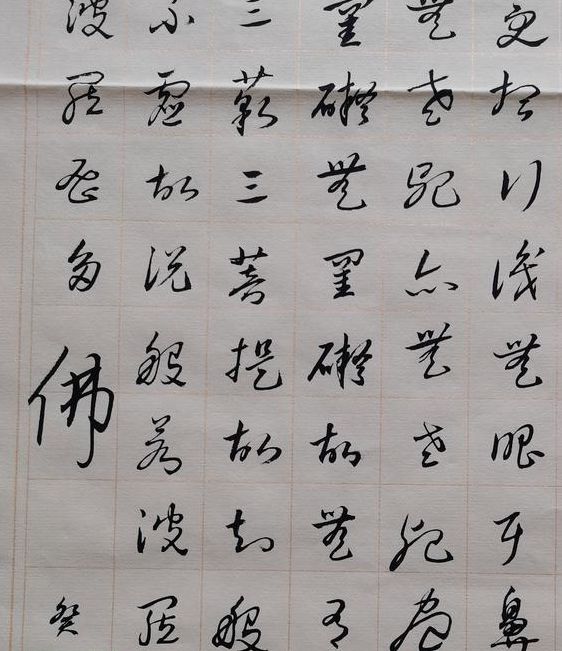 受想行識無眼耳鼻
無老死亦無老死盡
罣礙無罣礙故無有
三藐三菩提故知般
不虛故說般若波羅
波羅蜜多
佛
癸